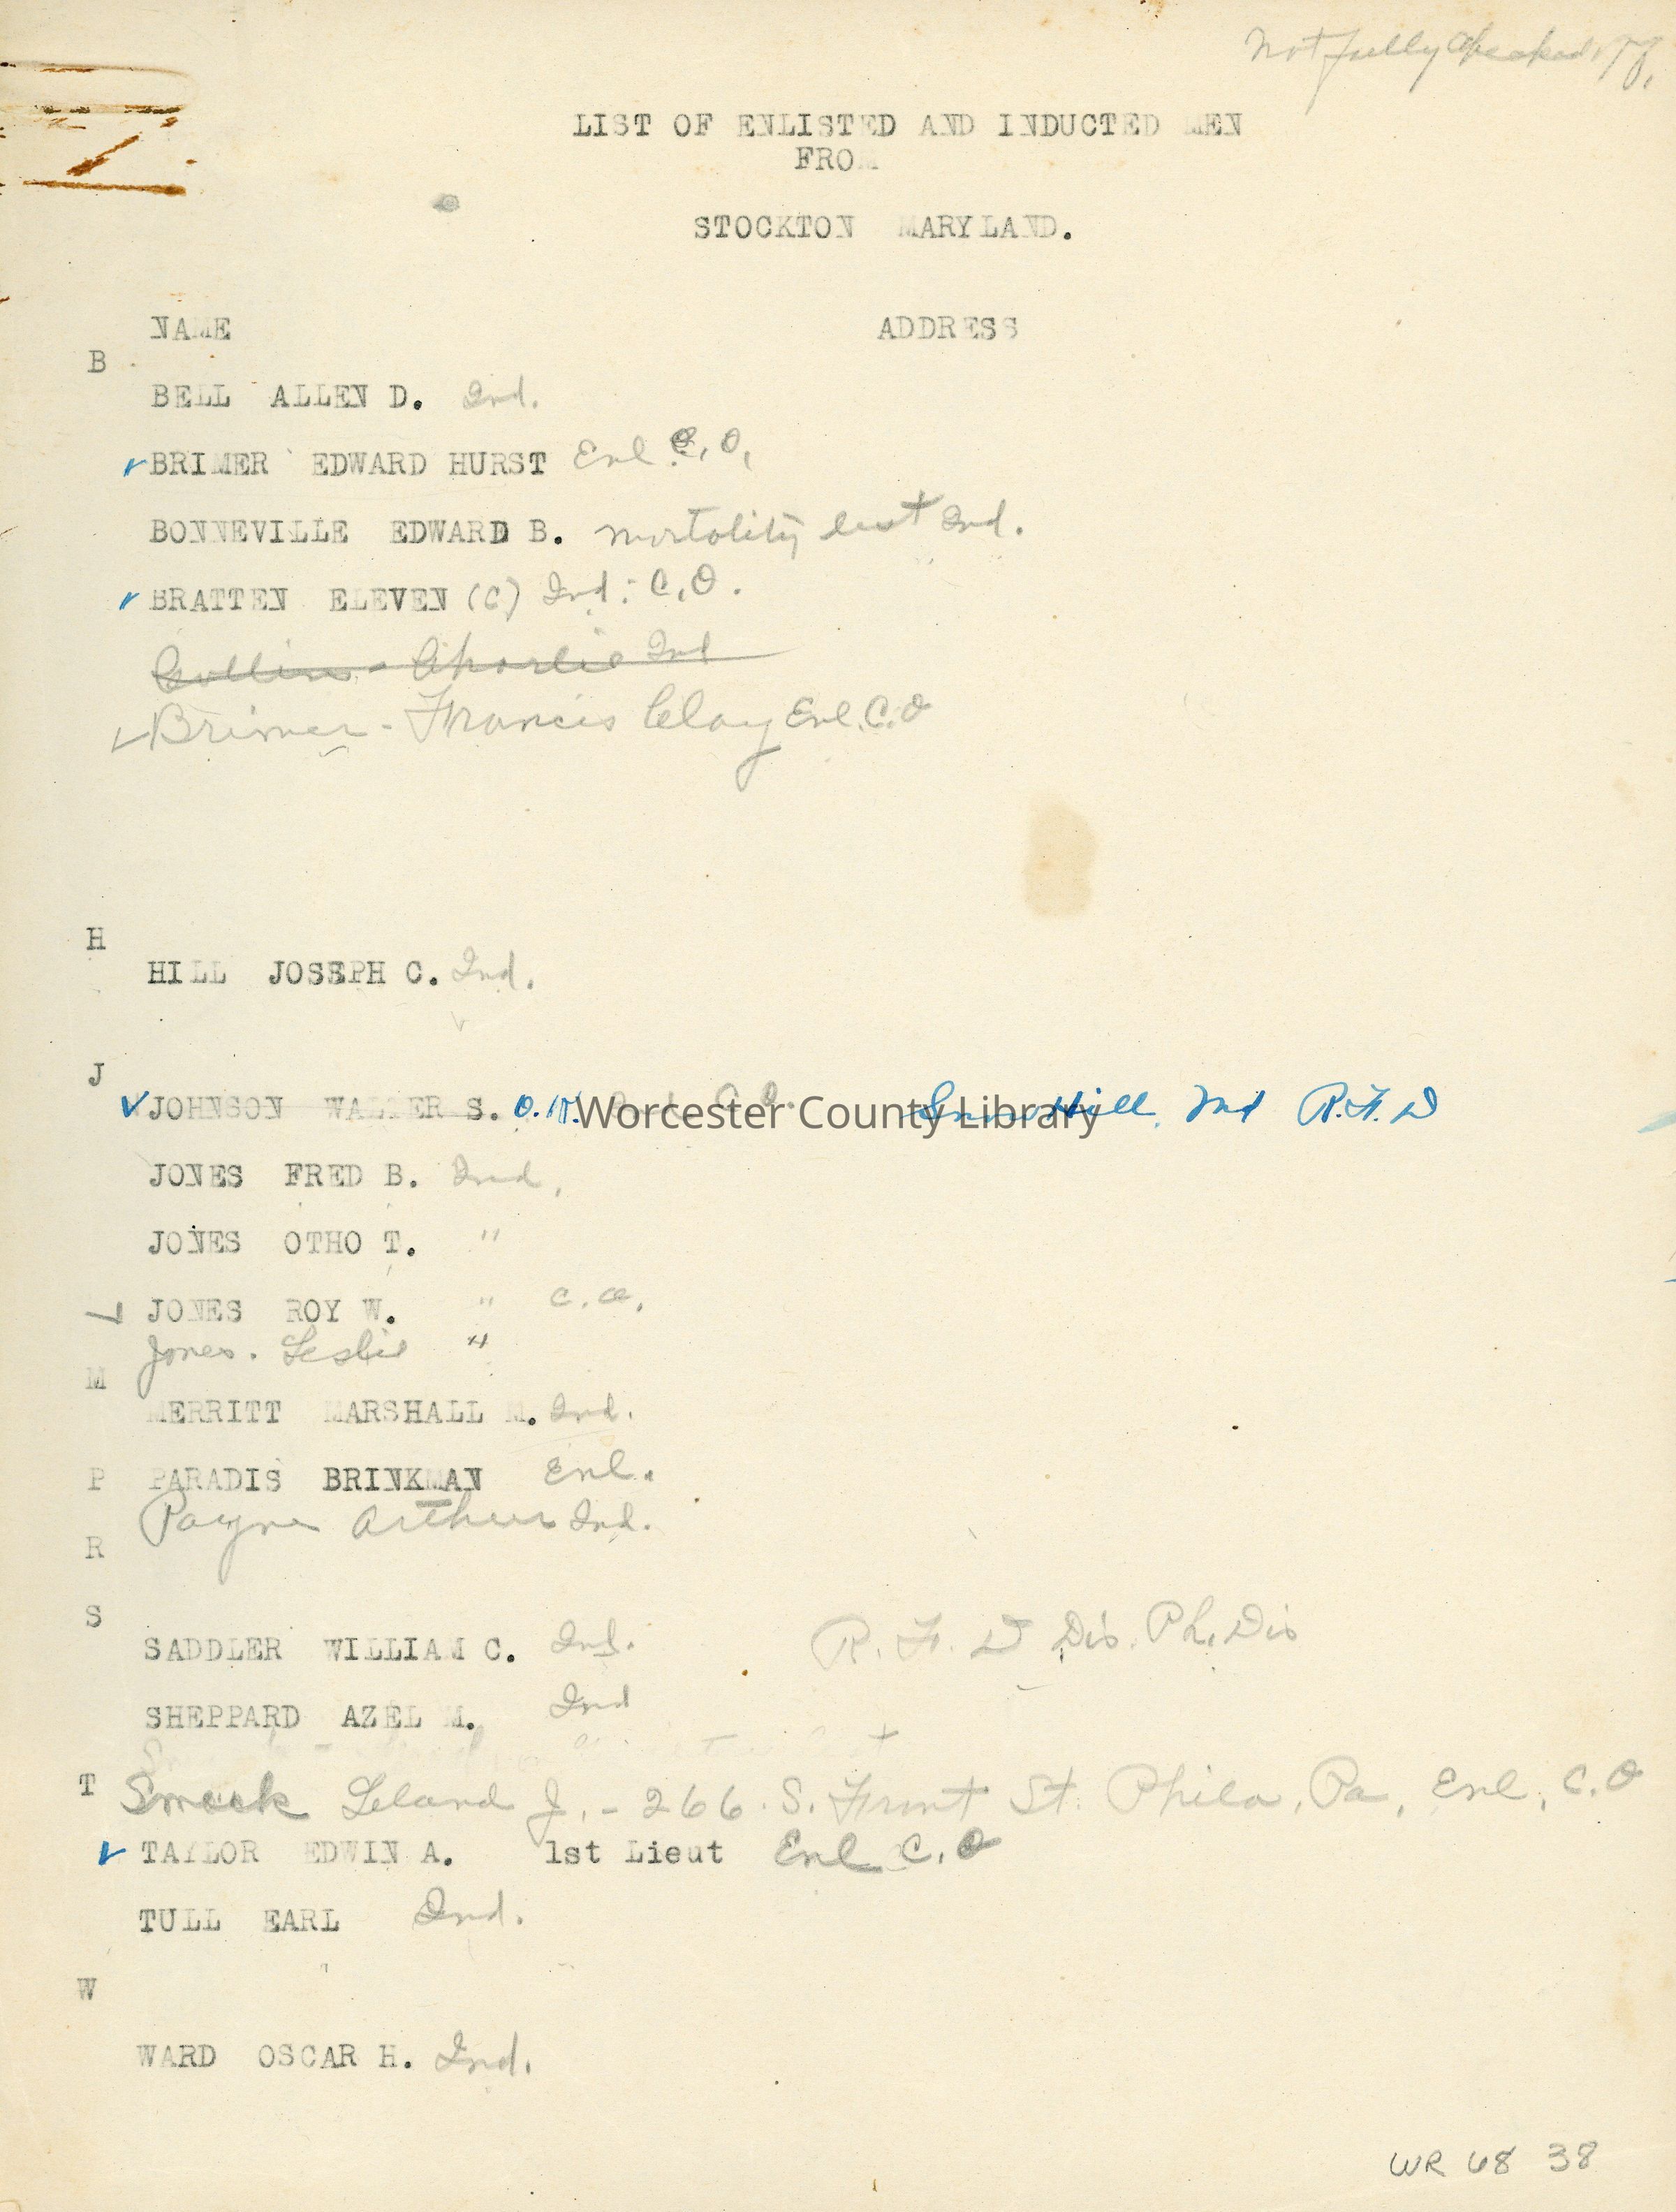 Not fully checked,
LIST OF ENLISTED AND INDUCTED MEN
FROM
STOCKTON MARYLAND.
NAME ADDRESS
B
BELL ALLEN D. Ind.
✓ BRIMER EDWARD HURST Enl. C.O.
BONNEVILLE EDWARD B. mortality list Ind.
✓ BRATTEN ELEVEN (C) Ind. C.O.
Collins - Charlie Ind
✓ Brimer - Francis Clay Enl. C.O
H
HILL JOSEPH C. Ind.
J
✓ JOHNSON WALTER S. O.K. Snow Hill, Md R.F.D
Worcester County Library
JONES FRED B. Ind.
JONES OTHO T. "
✓ JONES ROY W. " C.O.
Jones. Leslie "
M
MERRITT MARSHALL M. Ind.
P PARADIS BRINKMAN Enl.
Payne Arthur Ind.
R
S
SADDLER WILLIAM C. Ind. R.F.D Dis. Ph. Dis
SHEPPARD AZEL M. Ind
T Smack Leland J. - 266 S. Front St. Phila, Pa, Enl. C.O
✓ TAYLOR EDWIN A. 1st Lieut Enl C.O
TULL EARL Ind.
W
WARD OSCAR H. Ind.
WR 68 38